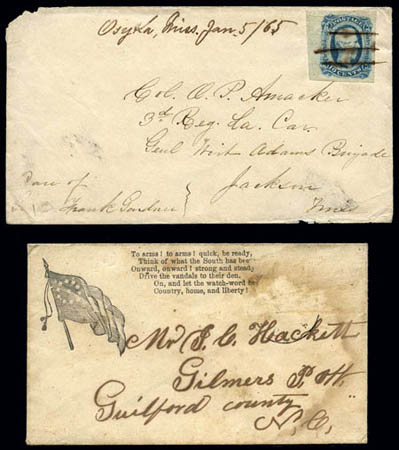 Osyka, Miss. Jan. 5/65
POSTAGE
Col. O. P. Amacker
3rd Reg. La. Cav.
Genl Wirt Adams Brigade
Jackson
Care of
Frank Gardner
Miss
To arms! to arms! quick, be ready,
Think of what the South has been
Onward, onward! strong and steady
Drive the vandals to their den.
On, and let the watch-word be
Country, home, and liberty!
Mr S. C. Hackett
Gilmers P. Off.
Guilford county
N. C.